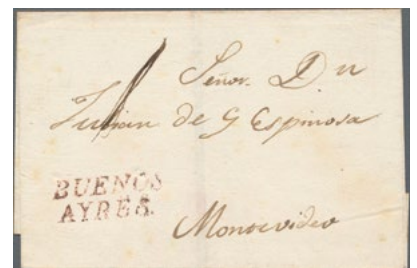 Señor. Dn
Julian de G Espinosa
BUENOS
AYRES.
Montevideo